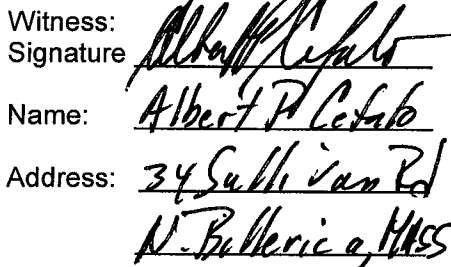 Witness:
Signature Albert P Cefalo
Name: Albert P Cefalo
Address: 34 Sullivan Rd
N. Billerica, MASS